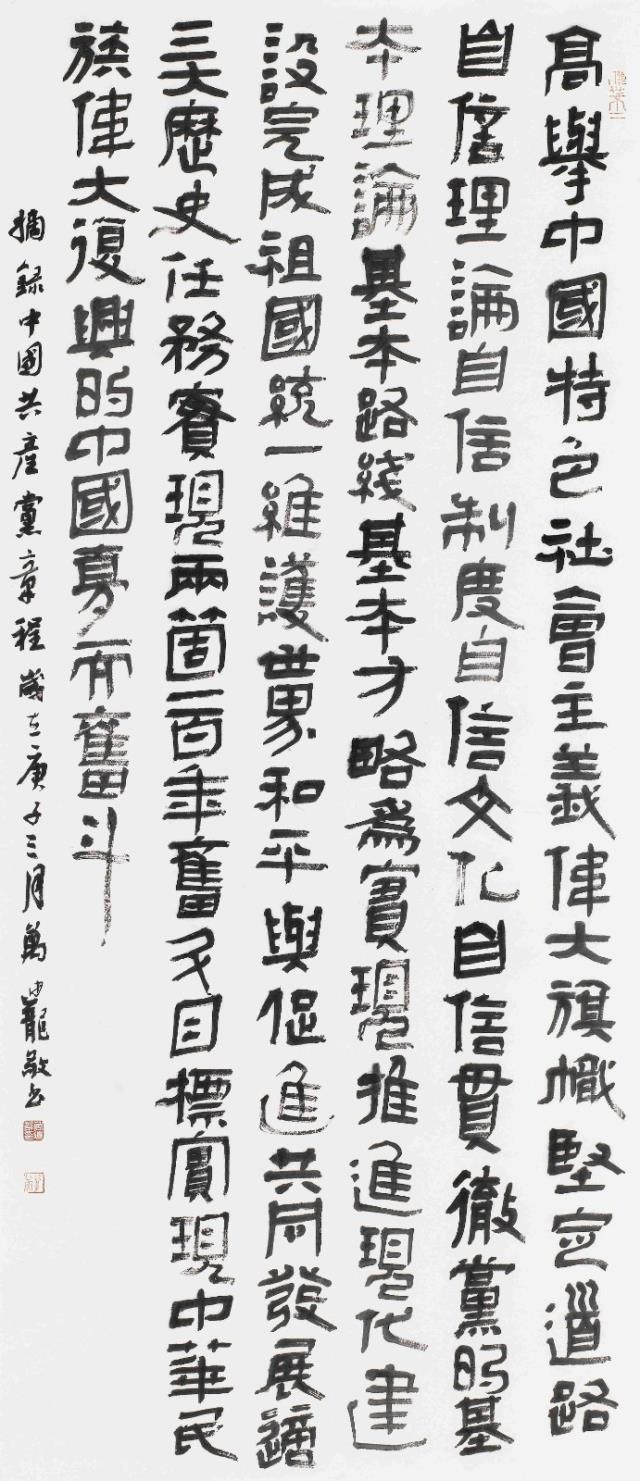 高舉中國特色社會主義偉大旗幟堅定道路
自信理論自信制度自信文化自信貫徹黨的基
本理論基本路綫基本方略為實現推進現代建
設完成祖國統一維護世界和平與促進共同發展
三大歷史任務實現兩箇一百年奮斗目標實現中華民
族偉大復興的中國夢而奮斗
摘錄中國共産黨章程歲在庚子三月萬龍敬書